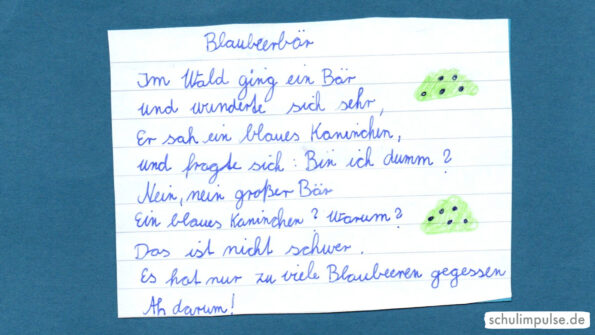 Blaubeerbär
Im Wald ging ein Bär
und wunderte sich sehr,
Er sah ein blaues Kaninchen,
und fragte sich: Bin ich dumm?
Nein, nein großer Bär
Ein blaues Kaninchen? Warum?
Das ist nicht schwer.
Es hat nur zu viele Blaubeeren gegessen
Ah darum!
schulimpulse.de